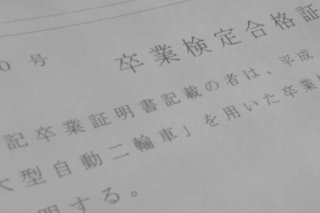 0 号
卒業検定合格証
記卒業証明書記載の者は、平成
大型自動二輪車」を用いた卒業
明する。